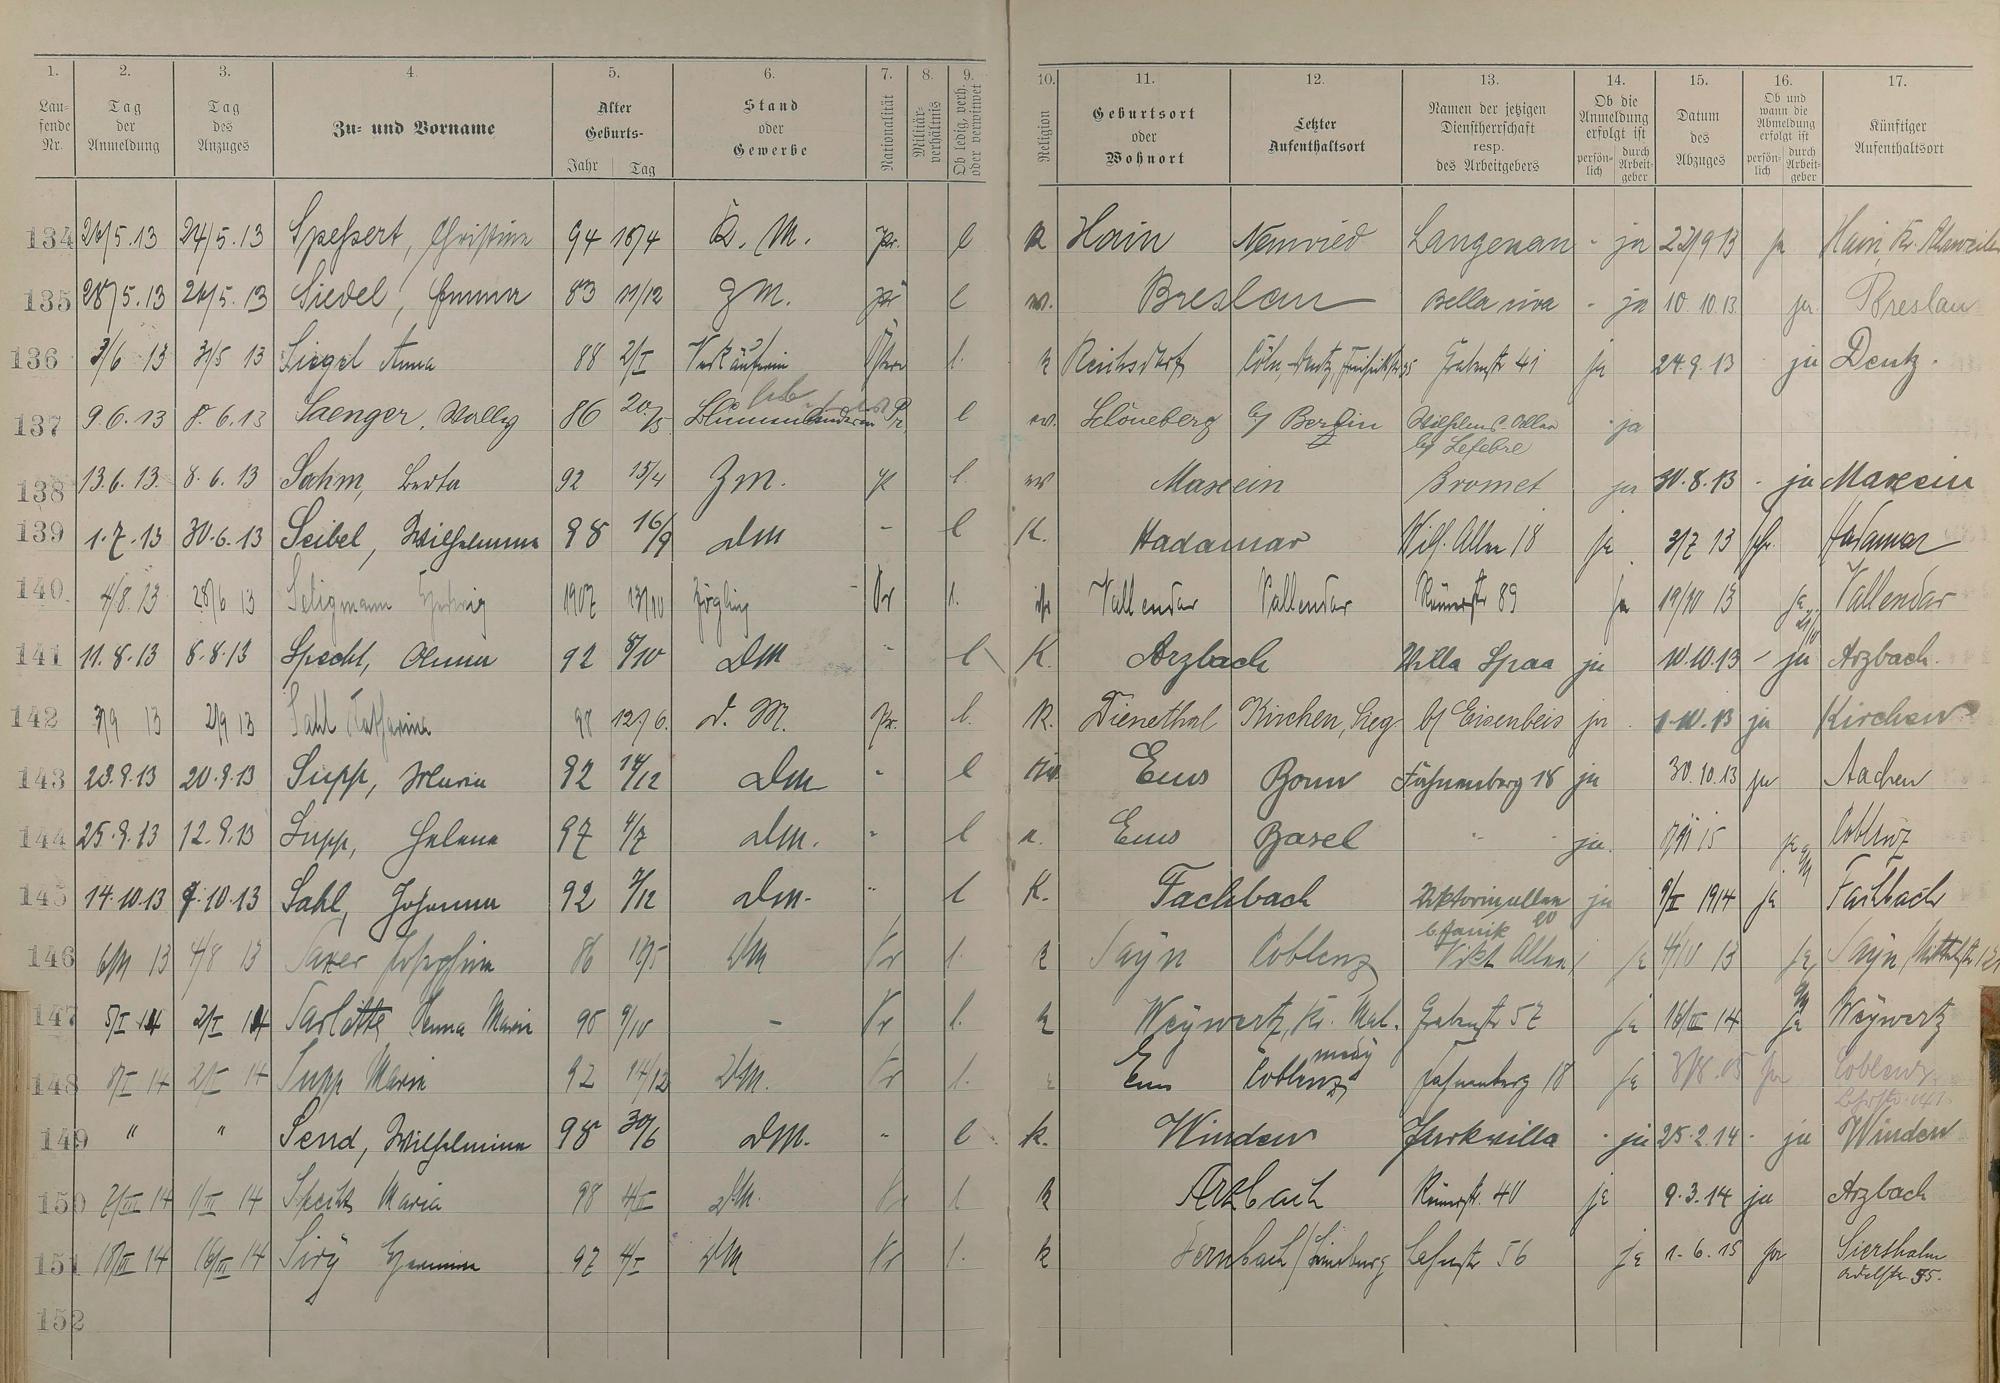 1. 2. 3. 4. 5. 6. 7. 8. 9. 10. 11. 12. 13. 14. 15. 16. 17.
Lau-
fende
Nr.
Tag
der
Anmeldung
Tag
des
Anzuges
Zu- und Vorname
Alter
Geburts-
Jahr Tag
Stand
oder
Gewerbe
Nationalität
Militär-
verhältnis
Ob ledig, verh.
oder verwitwet
Religion
Geburtsort
oder
Wohnort
Letzter
Aufenthaltsort
Namen der jetzigen
Dienstherrschaft
resp.
des Arbeitgebers
Ob die
Anmeldung
erfolgt ist
persön-
lich
durch
Arbeit-
geber
Datum
des
Abzuges
Ob und
wann die
Abmeldung
erfolgt ist
persön-
lich
durch
Arbeit-
geber
Künftiger
Aufenthaltsort
134 24/5.13 Speßert, Christine 94 18/4 K. M. pr. l K Hain Neuwied Langenau - ja 22/9 13 ja Hain, Kr. Ahrweiler
135 28/5.13 24/5.13 Siedel, Emma 83 11/12 ZM. pr l ev. Breslau Bella riva - ja 10.10.13. ja Breslau
136 3/6 13 31/5 13 Siegel Anna 88 2/I Verkäuferin Österr l. k Reichsdorf Cöln-Deutz, Grabenstr 41 ja 24.9.13 ja Deutz.
137 9.6.13 8.6.13 Saenger, Wally 86 20/5 Pr. l ev. Schöneberg b/ Berlin Wilhelms Allee - ja
b/ Lefebre
138 13.6.13. 8.6.13 Sahm, Berta 92 15/4 ZM. pr l. ev Maxsein Bromet ja 30.8.13 - ja Maxsein
139 1.7.13 30.6.13 Seibel, Wilhelmine 98 16/9 DM - l K. Hadamar Wilh. Allee 18 ja 3/7 13 Hadamar
140. 4/8.13 28/6 13 Seligmann 1907 13/10 Zögling Pr l. isr Vallendar Vallendar Römerstr 89 ja 19/10 13 ja Vallendar
141 11.8.13 8.8.13 Specht, Anna 92 8/10 DM - l K. Arzbach Villa Spaa ja 10.10.13 - ja Arzbach.
142 3/9 13 2/9 13 Sahl Katharina 98 12/6. D. M. Pr. l. K. Dienethal Kirchen, Sieg b/ Eisenbeis ja 1.10.13 ja Kirchen
143 23.9.13 20.9.13 Supp, Maria 92 14/12 DM - l Ems Bonn Fahnenberg 18 ja 30.10.13 ja Aachen
144 25.9.13 12.9.13 Supp, Helene 97 4/7 DM. " l Ems Basel " " ja. ja Coblenz
145 14.10.13 9.10.13 Sahl, Johanna 92 7/12 DM. " l K. Fachbach Viktoriaallee ja 9/I 1914 ja Fachbach
146 6/11 13 4/8 13 Saxer Josephine 86 DM Pr l. k Sayn Coblenz Vikt Allee ja 4/10 13 ja, Sayn,
147 5/I 14 2/I 14 Sarlette Anna Maria 90 9/10 - Pr l. k Weywertz, Kr. Mal. Grabenstr 57 ja 16/III 14 ja Weywertz
medy
148 8/I 14 2/I 14 Supp Maria 92 14/12 DM. Pr l. Ems Coblenz Fahnenberg 18 ja Coblenz
149 " " Send, Wilhelmine 98 30/6 DM. " l k. Winden Parkvilla - ja 25.2.14 - ja Winden
150 2/III 14 1/III 14 Specht Maria 98 4/II DM. Pr l k Arzbach Römerstr. 40 ja 9.3.14 ja Arzbach
151 18/III 14 16/III 14 97 4/I DM Pr l. k Dernbach / Limburg Lahnstr 56 ja 1.6.15 ja Siershahn
Adolfstr. 55.
152